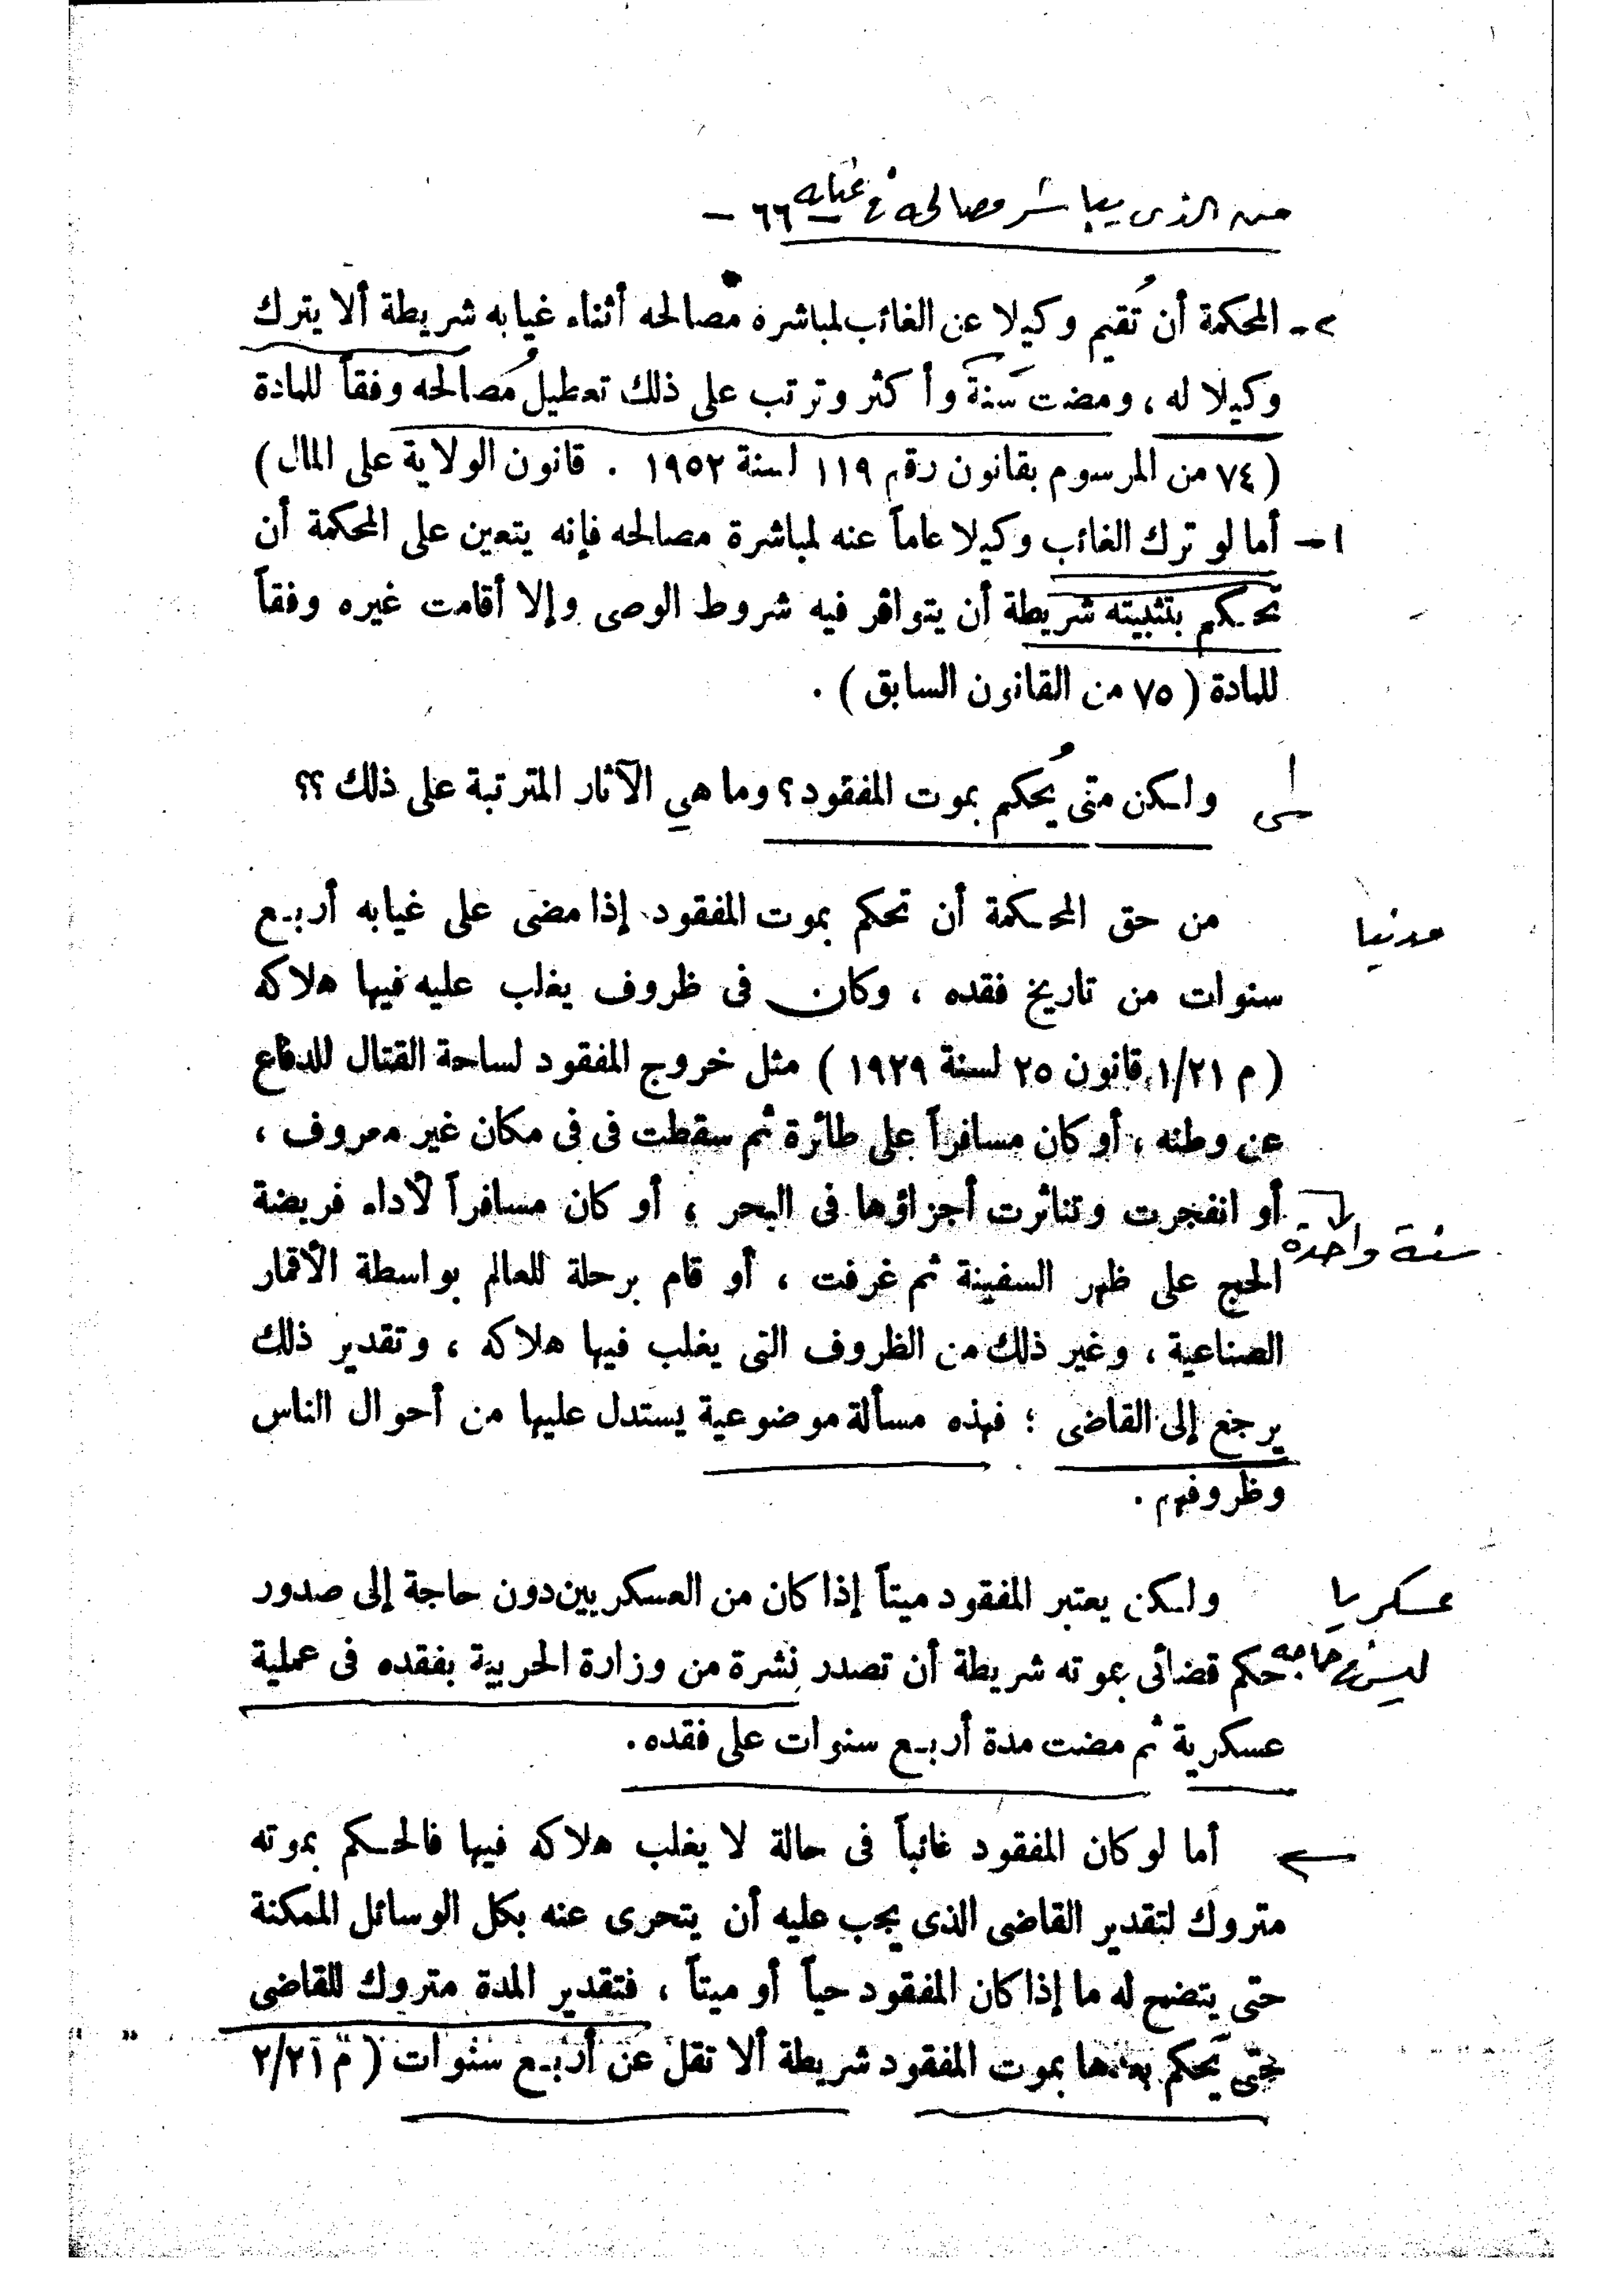 من الذى يباشر مصالحه فى غيابه
— ٦٦ —
٢- المحكمة أن تُقيم وكيلا عن الغائب لمباشرة مصالحه أثناء غيابه شريطة ألا يترك
وكيلا له ، ومضت سنة وأكثر وترتب على ذلك تعطيل مصالحه وفقاً للمادة
( ٧٤ من المرسوم بقانون رقم ١١٩ لسنة ١٩٥٢ . قانون الولاية على المال )
١- أما لو ترك الغائب وكيلا عاماً عنه لمباشرة مصالحه فإنه يتعين على المحكمة أن
تحكم بتثبيته شريطة أن يتوافر فيه شروط الوصى وإلا أقامت غيره وفقاً
للمادة ( ٧٥ من القانون السابق ) .
ولكن متى يُحكم بموت المفقود ؟ وما هي الآثار المترتبة على ذلك ؟؟
مدنيا
من حق المحكمة أن تحكم بموت المفقود إذا مضى على غيابه أربع
سنوات من تاريخ فقده ، وكان فى ظروف يغلب عليه فيها هلاكه
( م ١/٢١ قانون ٢٥ لسنة ١٩٢٩ ) مثل خروج المفقود لساحة القتال للدفاع
عن وطنه ، أو كان مسافراً على طائرة ثم سقطت فى فى مكان غير معروف ،
أو انفجرت وتناثرت أجزاؤها فى البحر ، أو كان مسافراً لأداء فريضة
سنة واحدة
الحج على ظهر السفينة ثم غرفت ، أو قام برحلة للعالم بواسطة الأقمار
الصناعية ، وغير ذلك من الظروف التى يغلب فيها هلاكه ، وتقدير ذلك
يرجع إلى القاضى ؛ فهذه مسألة موضوعية يستدل عليها من أحوال الناس
وظروفهم .
عسكريا
ولكن يعتبر المفقود ميتاً إذا كان من العسكريين دون حاجة إلى صدور
حكم قضائى بموته شريطة أن تصدر نشرة من وزارة الحربية بفقده فى عملية
عسكرية ثم مضت مدة أربع سنوات على فقده .
أما لو كان المفقود غائباً فى حالة لا يغلب هلاكه فيها فالحكم بموته
متروك لتقدير القاضى الذى يجب عليه أن يتحرى عنه بكل الوسائل الممكنة
حتى يتضح له ما إذا كان المفقود حياً أو ميتاً ، فتقدير المدة متروك للقاضى
حتى يحكم بعدها بموت المفقود شريطة ألا تقل عن أربع سنوات ( م ٢/٢١